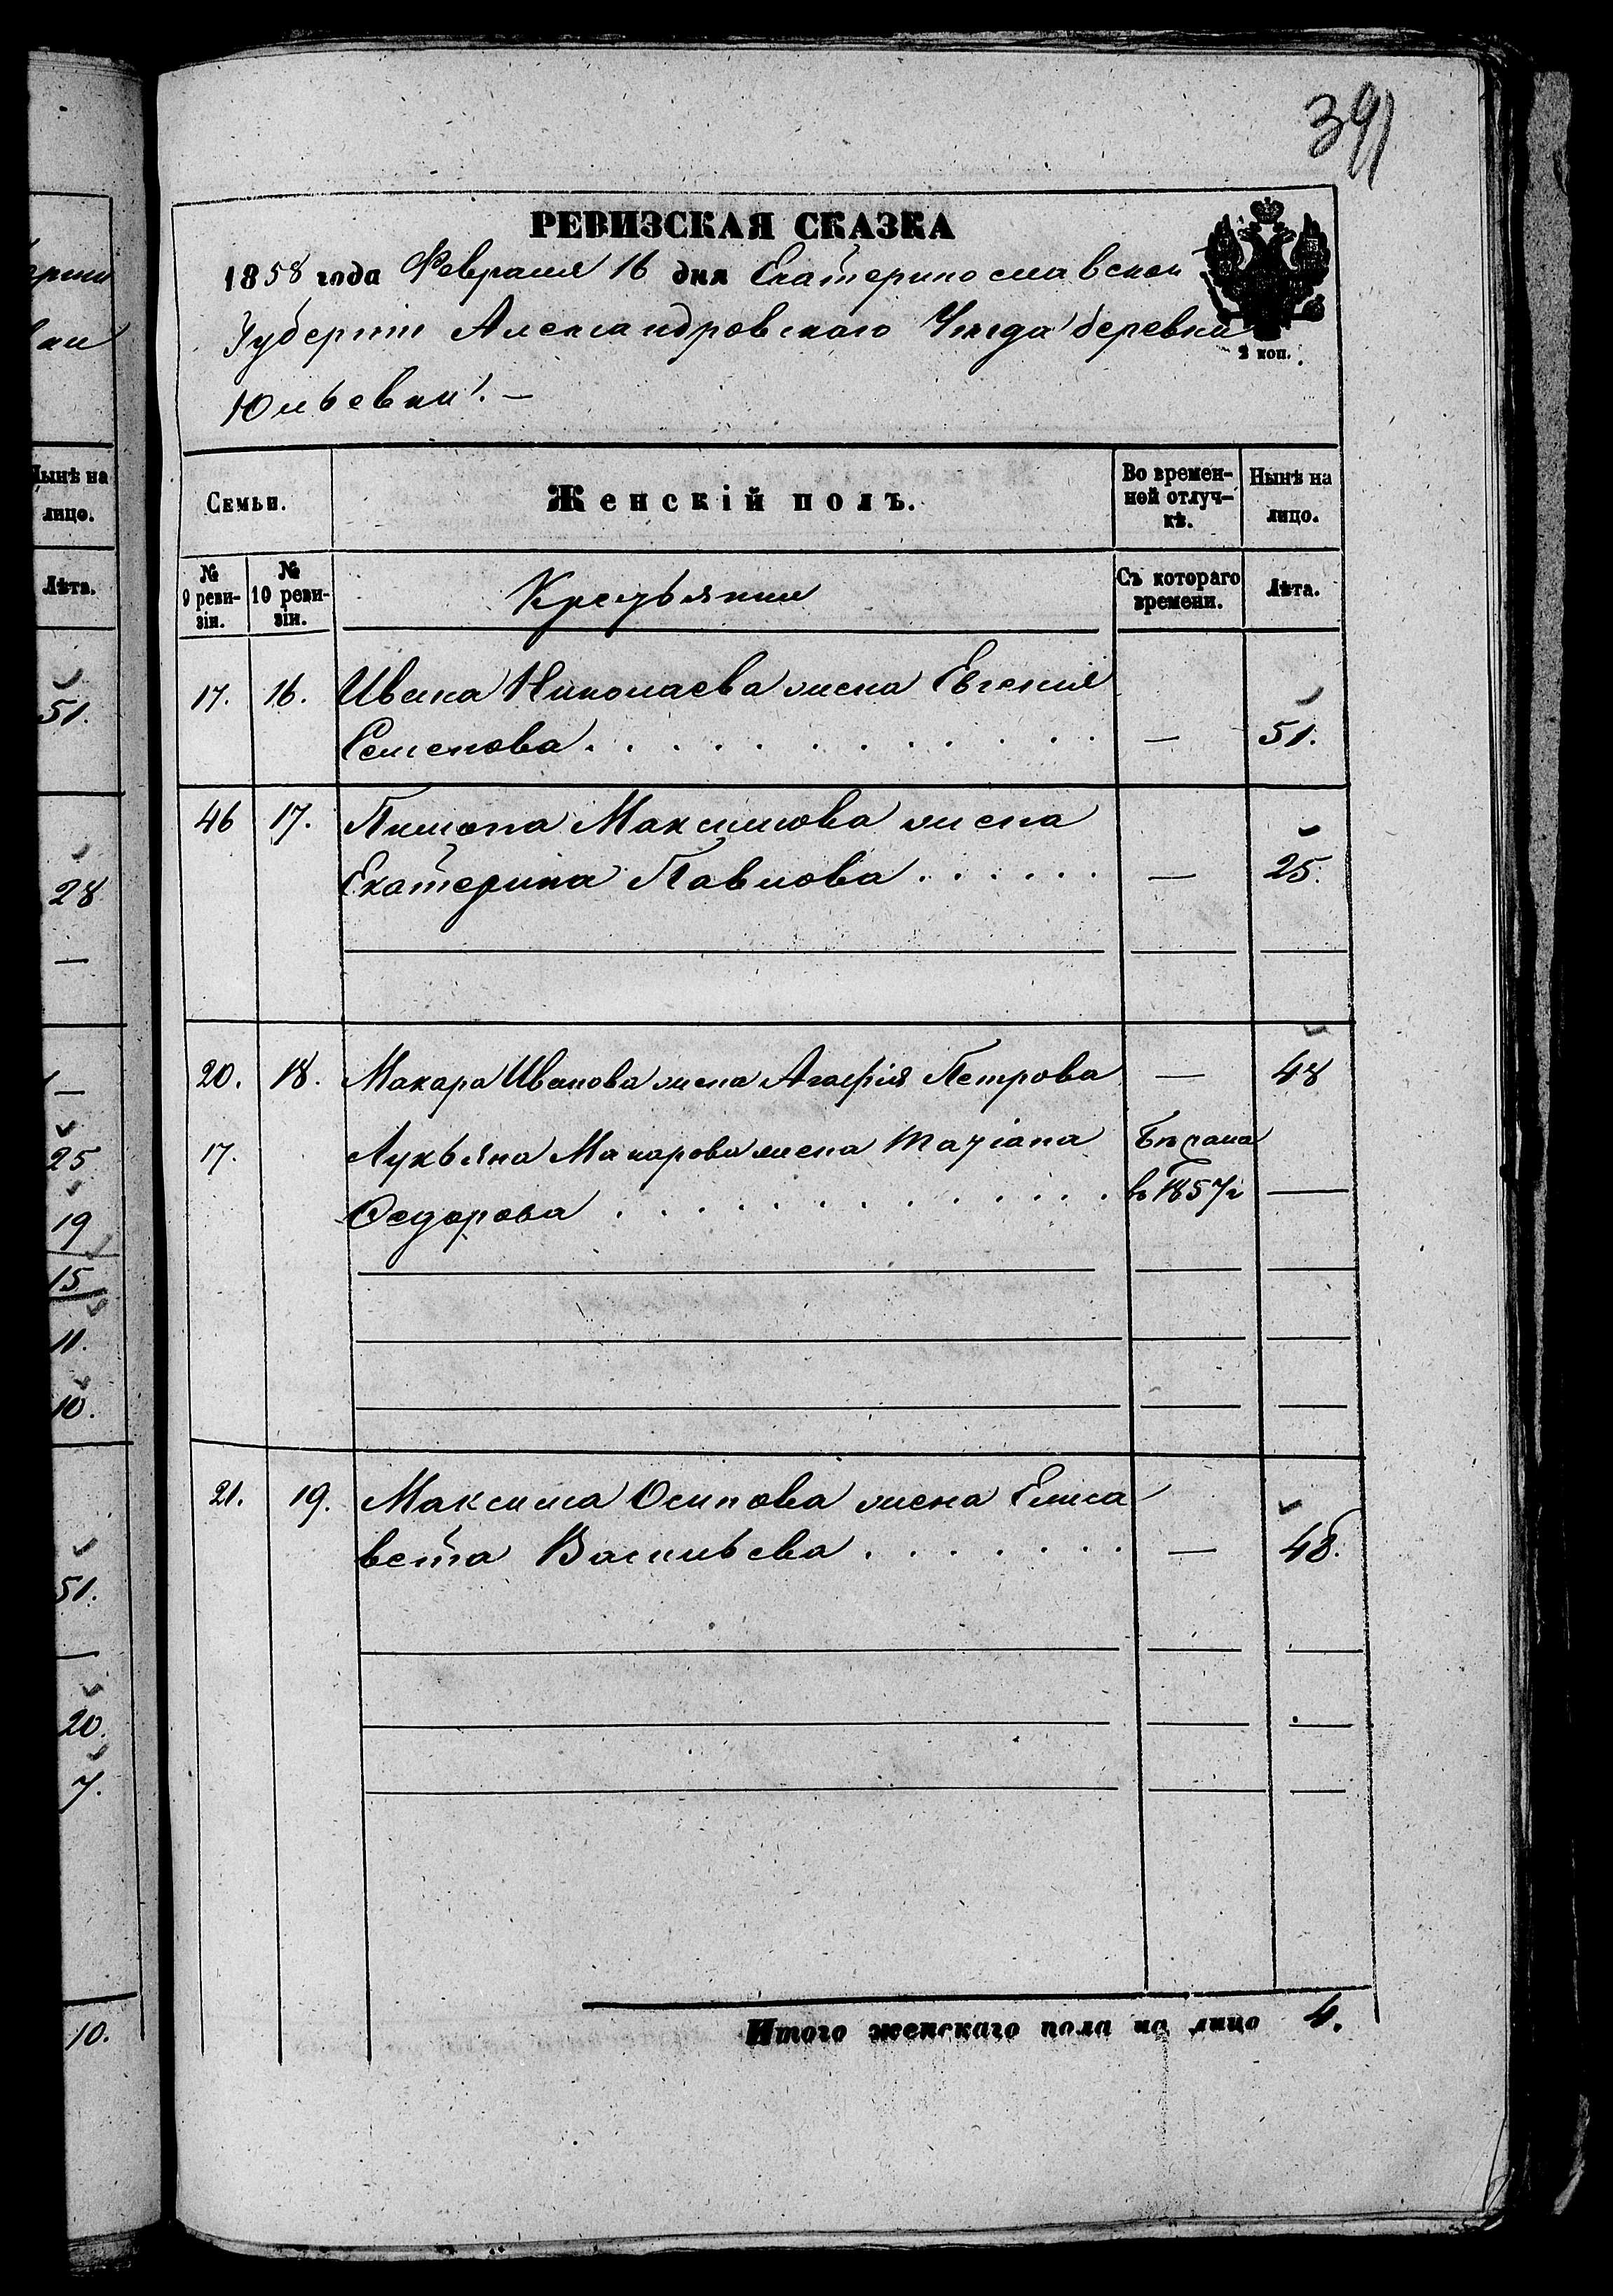 391
РЕВИЗСКАЯ СКАЗКА
1858 года Февраля 16 дня Екатеринославской
Губерніи Александровскаго Уѣзда деревни
2 коп.
Юльевки. —
Семьи.
Женскій полъ.
Во времен-
ной отлуч-
кѣ.
Нынѣ на
лицо.
№
9 реви-
зіи.
№
10 реви-
зіи.
Крестьяне
Съ котораго
времени.
Лѣта.
17. 16. Ивана Николаева жена Евгенія
Семенова . . . . . . . . . . — 51.
46 17. Пимона Максимова жена
Екатерина Павлова . . . . . . — 25.
20. 18. Макара Иванова жена Агафія Петрова — 48
17. Лукьяна Макарова жена Татіана Бѣжала
Ѳедорова . . . . . . . . . . въ 1857 г —
21. 19. Максима Осипова жена Елиса
вета Васильева . . . . . . . — 48.
Итого женскаго пола на лицо 4.
ерніи
вки
Нынѣ на
лицо.
Лѣта.
51.
28
—
—
25
19
15
11.
10.
51.
—
20.
7.
10.